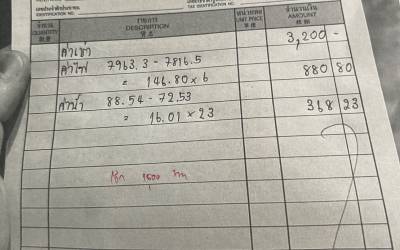 เลขประจำตัวประชาชน
IDENTIFICATION NO.
เลขประจำตัวผู้เสียภาษี
TAX IDENTIFICATION NO.
จำนวน รายการ หน่วยละ จำนวนเงิน
QUANTITY DESCRIPTION UNIT PRICE AMOUNT
ค่าเช่า 3,200 -
ค่าไฟ 7963.3 - 7816.5
= 146.80 x 6 880 80
ค่าน้ำ 88.54 - 72.53
= 16.01 x 23 368 23